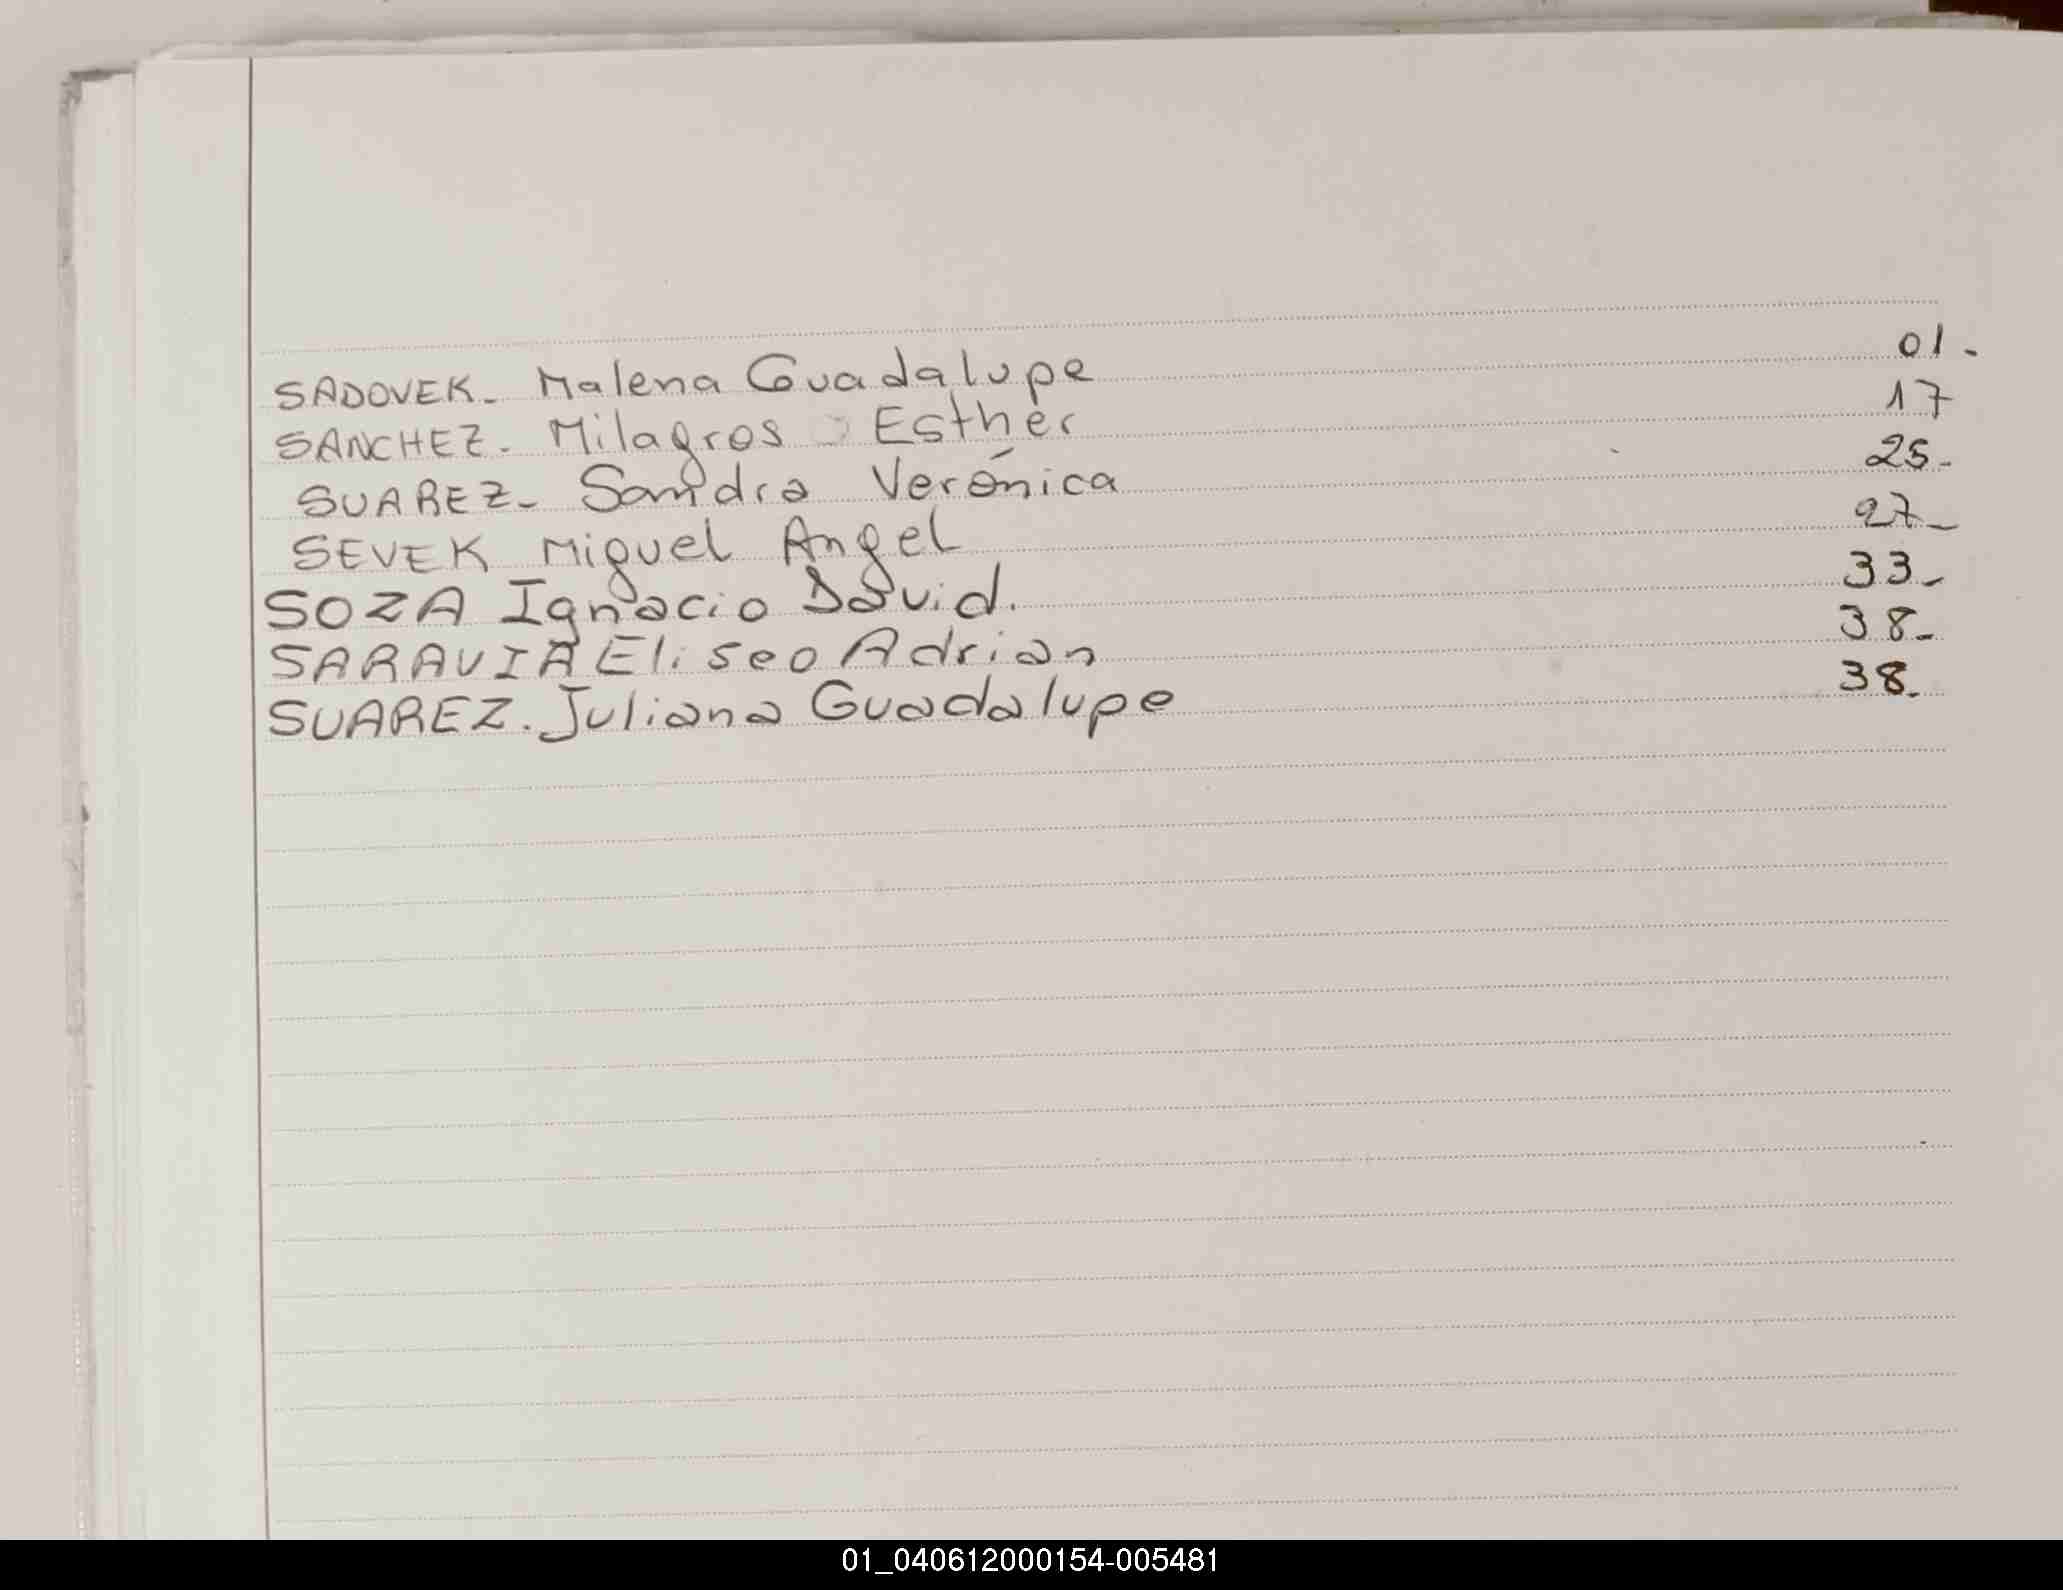 SADOVEK. Malena Guadalupe 01.
SANCHEZ. Milagros Esther 17
SUAREZ. Sandra Verónica 25.
SEVEK Miguel Angel 27.
SOZA Ignacio David. 33.
SARAVIA Eliseo Adrian 38.
SUAREZ. Juliana Guadalupe 38.
01_040612000154-005481